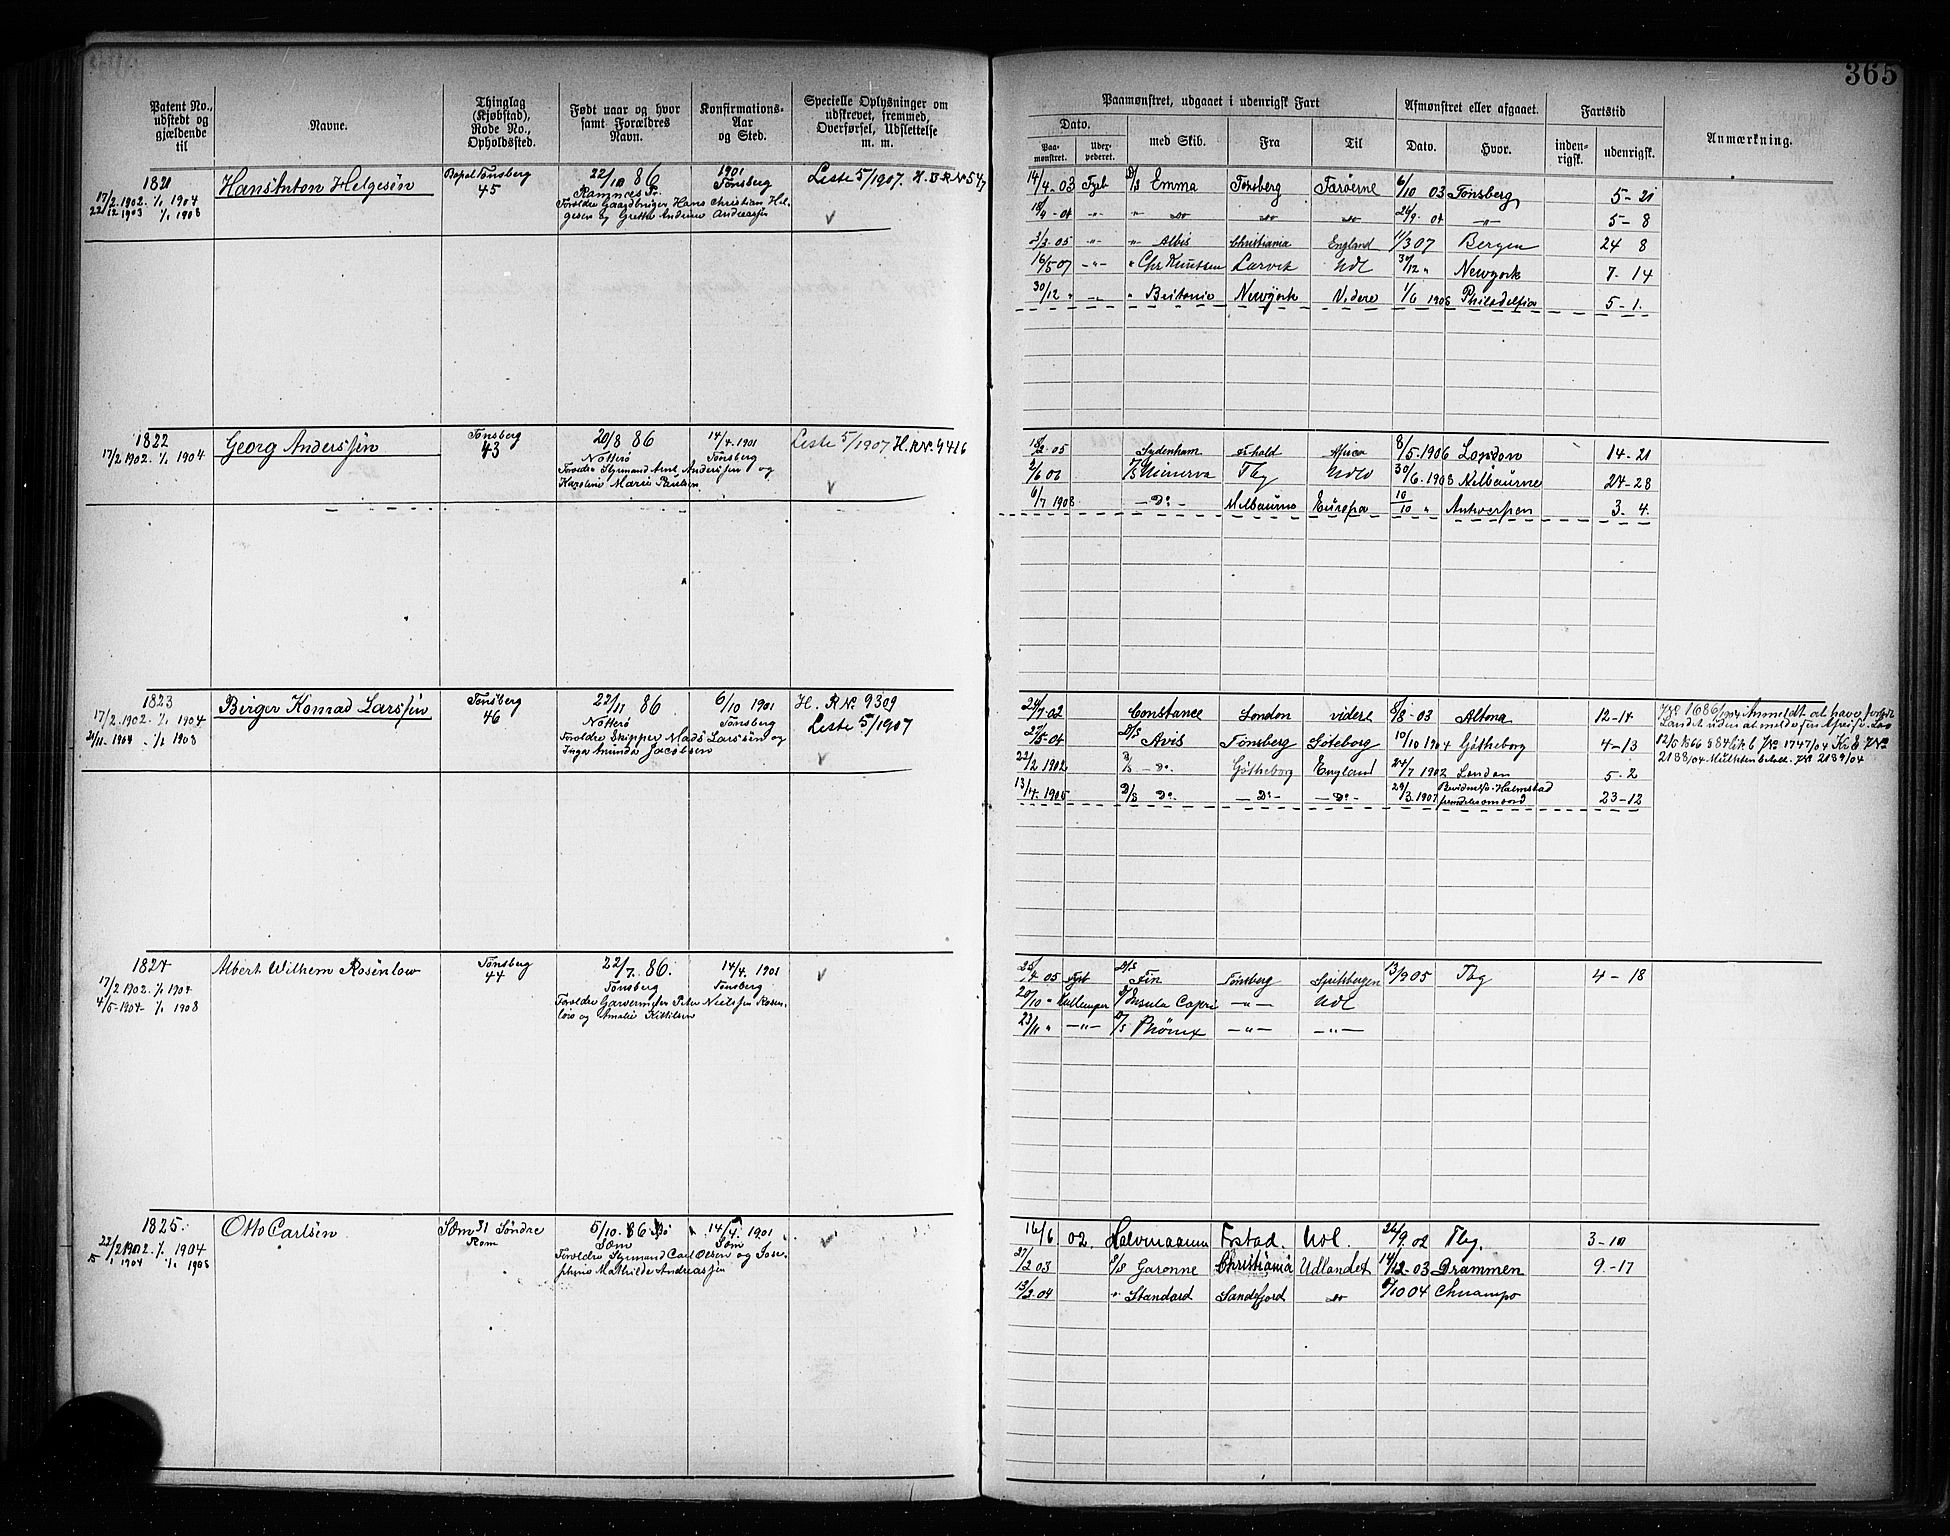 365
Patent No., udstedt og gjældende til
Navne.
Thinglag (Kjøbstad), Rode No., Opholdssted.
Født naar og hvor samt Forældres Navn.
Konfirmations-Aar og Sted.
Specielle Oplysninger om udskrevet, fremmed, Overførsel, Udslettelse m. m.
Paamønstret, udgaaet i udenrigsk Fart
Afmønstret eller afgaaet.
Fartstid
Anmærkning.
Dato.
Paa-mønstret.
Udex-pederet.
med Skib.
Fra
Til
Dato.
Hvor.
inden-rigsk.
udenrigsk.
1821
17/2 1902. 1/1 1904
22/12 1903 1/1 1908
Hans Anton Helgesøn
Tønsberg
45
22/10 86
Ramnæs
Forældre Gaardbruger Hans Christian Hel-
gesen og Grethe Andrine Andreassøn
1901
Tønsberg
Leste 5/1907. H.
14/4-03 Tgsb D/S Emma Tønsberg Færøerne 6/10 03 Tønsberg 5-21
18/4-04 -"- " do do do 24/9-04 -"- 5-8
3/3-05 -"- -"- Albis Christiania England 11/3 07 Bergen 24 8
16/5 07 -"- " Chr Knutsen Larvik Udl 30/12 " Newyork 7-14
30/12 " -"- " Britanie Newyork Videre 1/6 1908 Philadelfia 5-1.
1822
17/2 1902. 1/1 1904
Georg Anderssøn
Tønsberg
43
20/8 86
Nøtterø
Forældre Styrmand Anderssøn og
Karoline Marie Paulsen
14/4 1901
Tønsberg
Leste 5/1907 H.R.No. 4416
18/2 05 Sydenham Fr.hald Africa 8/5.1906 London 14-21
2/6 06 Minerva Tbg Udld 30/6.1908 Melbourne 24-28
6/7 1908 -Do- Melbourne Europa 10/10 " Antwerpen 3-4.
1823
17/2.1902. 1/1 1904
21/11-1904 1/1 1908
Birger Konrad Larssøn
Tønsberg
46
22/11 86
Nøtterø
Forældre Skipper Mads Larssøn og
Inger Aminda Jacobsen
6/10 1901
Tønsberg
H. R No. 9309
Leste 5/1907
24/7-02 Constance London videre 8/8-03 Altona 12-14
27/5-04 D/S Avis Tønsberg Göteborg 10/10 1904 Gøtheborg 4-13
22/2 1902 D/S -Do- Gøtheborg England 24/7 1902 London 5-2
13/4. 1905 D/S Do- -Do- -Do- 29/3.1907 Halmstad 23-12
No 1686/04 Anmeldt at have forladt
Landet uden
2188/04 No 2189/04
1824
17/2 1902. 1/1 1904
4/5-1904- 1/1 1908
Albert Wilhem Rosenlow
Tønsberg
44
22/7. 86.
Tønsberg
Forældre Garversvend Peter Nielssen Rosen-
løw og Amalie Kittilsen
14/4. 1901
Tønsberg
25/4 05 Tgsb D/S Fin Tønsberg Spitsbergen 13/9 05 Tbg 4-18
20/10 " D/S Insula Capri -"- Udl
23/11 " -"- D/S Phönix -"- -"-
1825.
22/2 1902. 1/1 1904
5/1 1904 1/1 1908
Otto Carlsen
Sæm 31 Søndre
Rom
5/10. 86
Sæm
Forældre Styrmand Carl Olsen og Jose-
phine Mathilde Andreassen
14/4. 1901
Sæm
16/6 02. Halvmaanen Frstad. Udl. 26/9. 02 Tbg. 3-10
27/2 03 D/S Garonne Christiania Udlandet 14/12-03 Drammen 9.-17
13/2.04 " Standard Sandefjord do 10 04 Chinampo